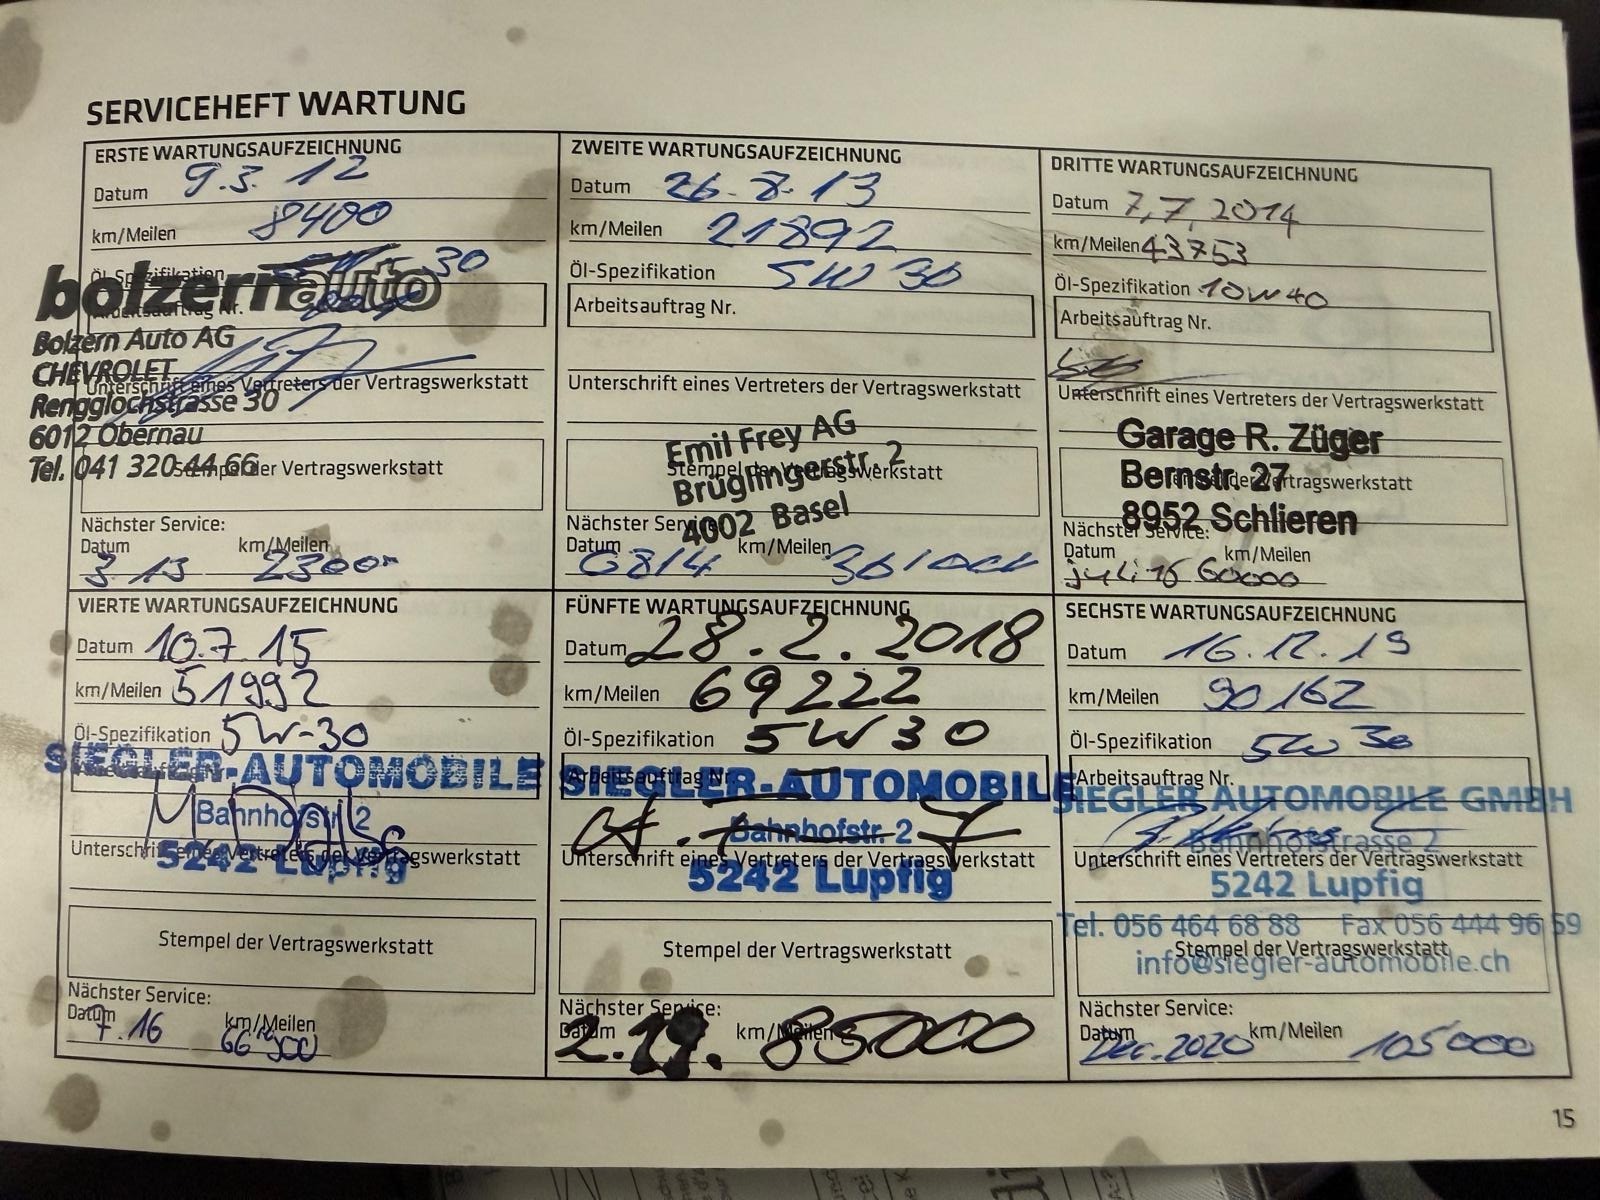 SERVICEHEFT WARTUNG
ERSTE WARTUNGSAUFZEICHNUNG
Datum 9.3. 12
km/Meilen 8400
Öl-Spezifikation 30
bolzern auto
Arbeitsauftrag Nr.
Bolzern Auto AG
CHEVROLET
Unterschrift eines Vertreters der Vertragswerkstatt
Rengglochstrasse 30
6012 Obernau
Tel. 041 320 44 66
Stempel der Vertragswerkstatt
Nächster Service:
Datum km/Meilen
3 13 2300
ZWEITE WARTUNGSAUFZEICHNUNG
Datum 26.8.13
km/Meilen 21892
Öl-Spezifikation 5W 30
Arbeitsauftrag Nr.
Unterschrift eines Vertreters der Vertragswerkstatt
Emil Frey AG
Stempel der Vertragswerkstatt
Brüglingerstr. 2
4002 Basel
Nächster Service:
Datum km/Meilen
08/14
DRITTE WARTUNGSAUFZEICHNUNG
Datum 7,7,2014
km/Meilen 43753
Öl-Spezifikation 10W40
Arbeitsauftrag Nr.
Unterschrift eines Vertreters der Vertragswerkstatt
Garage R. Züger
Bernstr. 27
Stempel der Vertragswerkstatt
8952 Schlieren
Nächster Service:
Datum km/Meilen
juli 15 60000
VIERTE WARTUNGSAUFZEICHNUNG
Datum 10.7.15
km/Meilen 51992
Öl-Spezifikation 5W-30
SIEGLER-AUTOMOBILE
Arbeitsauftrag Nr.
Bahnhofstr. 2
Unterschrift eines Vertreters der Vertragswerkstatt
5242 Lupfig
Stempel der Vertragswerkstatt
Nächster Service:
Datum km/Meilen
7.16
FÜNFTE WARTUNGSAUFZEICHNUNG
Datum 28.2.2018
km/Meilen 69222
Öl-Spezifikation 5W30
Arbeitsauftrag Nr.
SIEGLER-AUTOMOBILE
Bahnhofstr. 2
Unterschrift eines Vertreters der Vertragswerkstatt
5242 Lupfig
Stempel der Vertragswerkstatt
Nächster Service:
Datum km/Meilen
2.19. 85000
SECHSTE WARTUNGSAUFZEICHNUNG
Datum 16.12.19
km/Meilen 90162
Öl-Spezifikation 5W 30
Arbeitsauftrag Nr.
SIEGLER AUTOMOBILE GMBH
Bahnhofstrasse 2
Unterschrift eines Vertreters der Vertragswerkstatt
5242 Lupfig
Tel. 056 464 68 88 Fax 056 444 96 59
Stempel der Vertragswerkstatt
info@siegler-automobile.ch
Nächster Service:
Datum km/Meilen
Dec.2020 105000
15